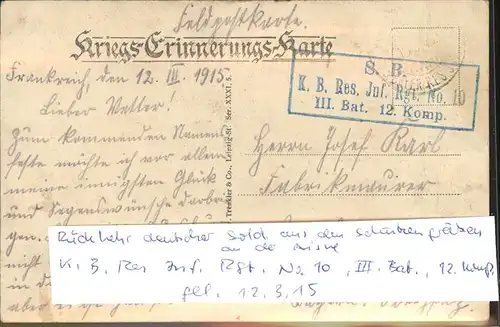 Feldpostkarte.
Kriegs-Erinnerungs-Karte
S. B.
K. B. Res. Inf. Rgt. No. 10
III. Bat. 12. Komp.
Frankreich, den 12. III. 1915
Lieber Vetter!
Zum kommenden Namens
feste möchte ich vor allem
meine innigsten Glück
und Segenswünsche darbrin
gen.
nicht
in
aber
Trenkler & Co., Leipzig-St. Ser. XXXI, 5.
Herrn Josef Karl
Fabrikmaurer
Rückkehr deutscher Sold. aus den Schützengräben
an der Aisne
K. B. Res Inf. Rgt. No. 10, III. Bat., 12. Komp.
gel. 12.3.15